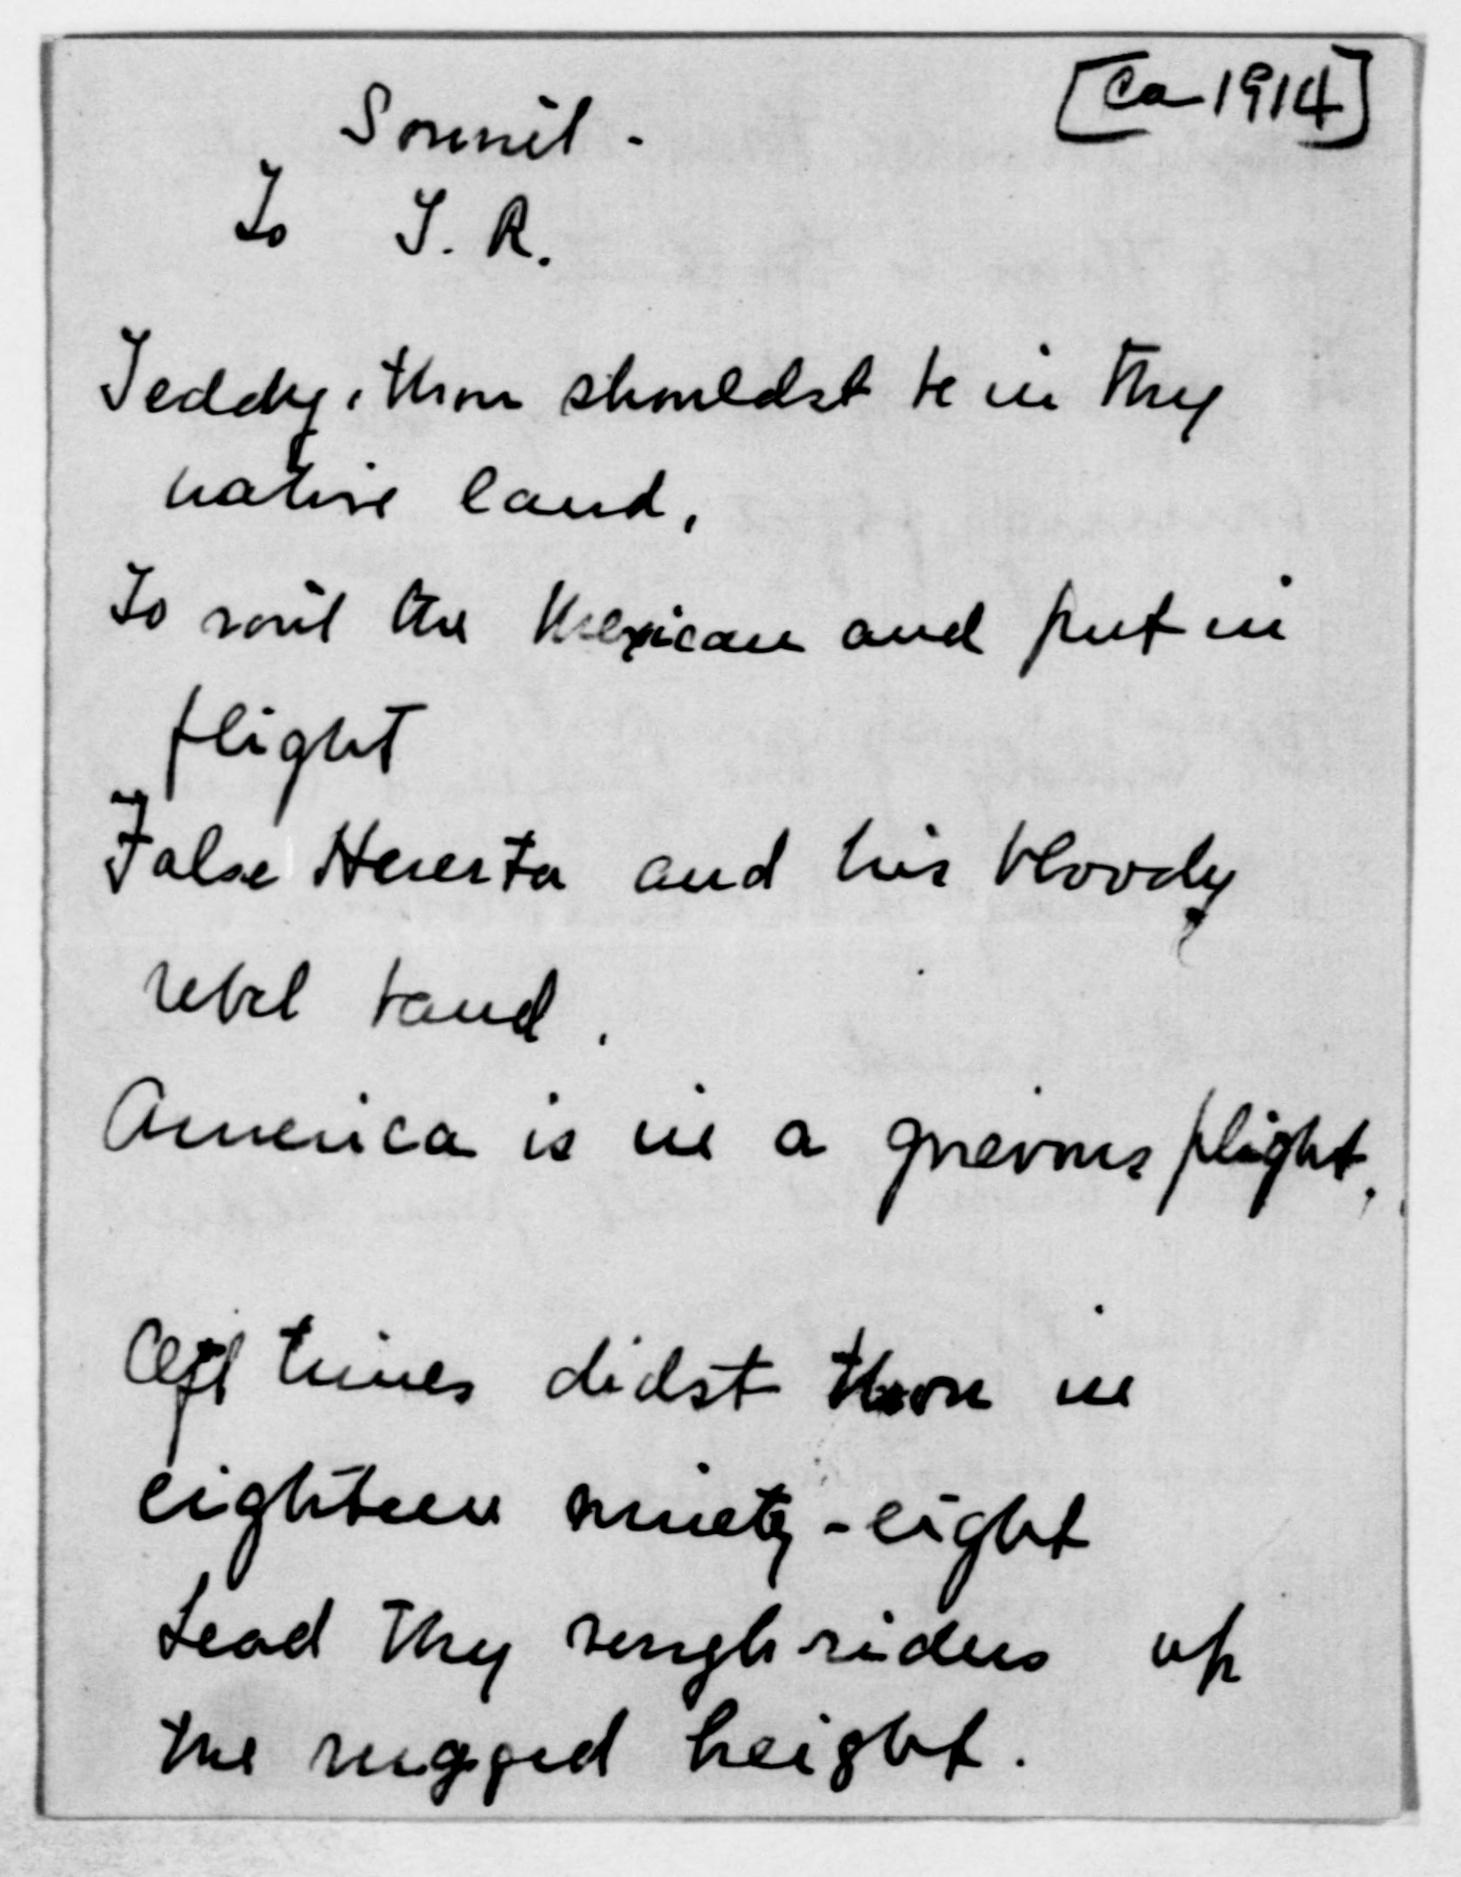 [Ca 1914]
Sonnet -
To T. R.
Teddy, thou shouldst be in thy
native land,
To rout the Mexican and put in
flight
False Heuerta and his bloody
rebel band.
America is in a grievous plight,
Oft times didst thou in
eighteen ninety-eight
Lead thy rough riders up
the rugged height.